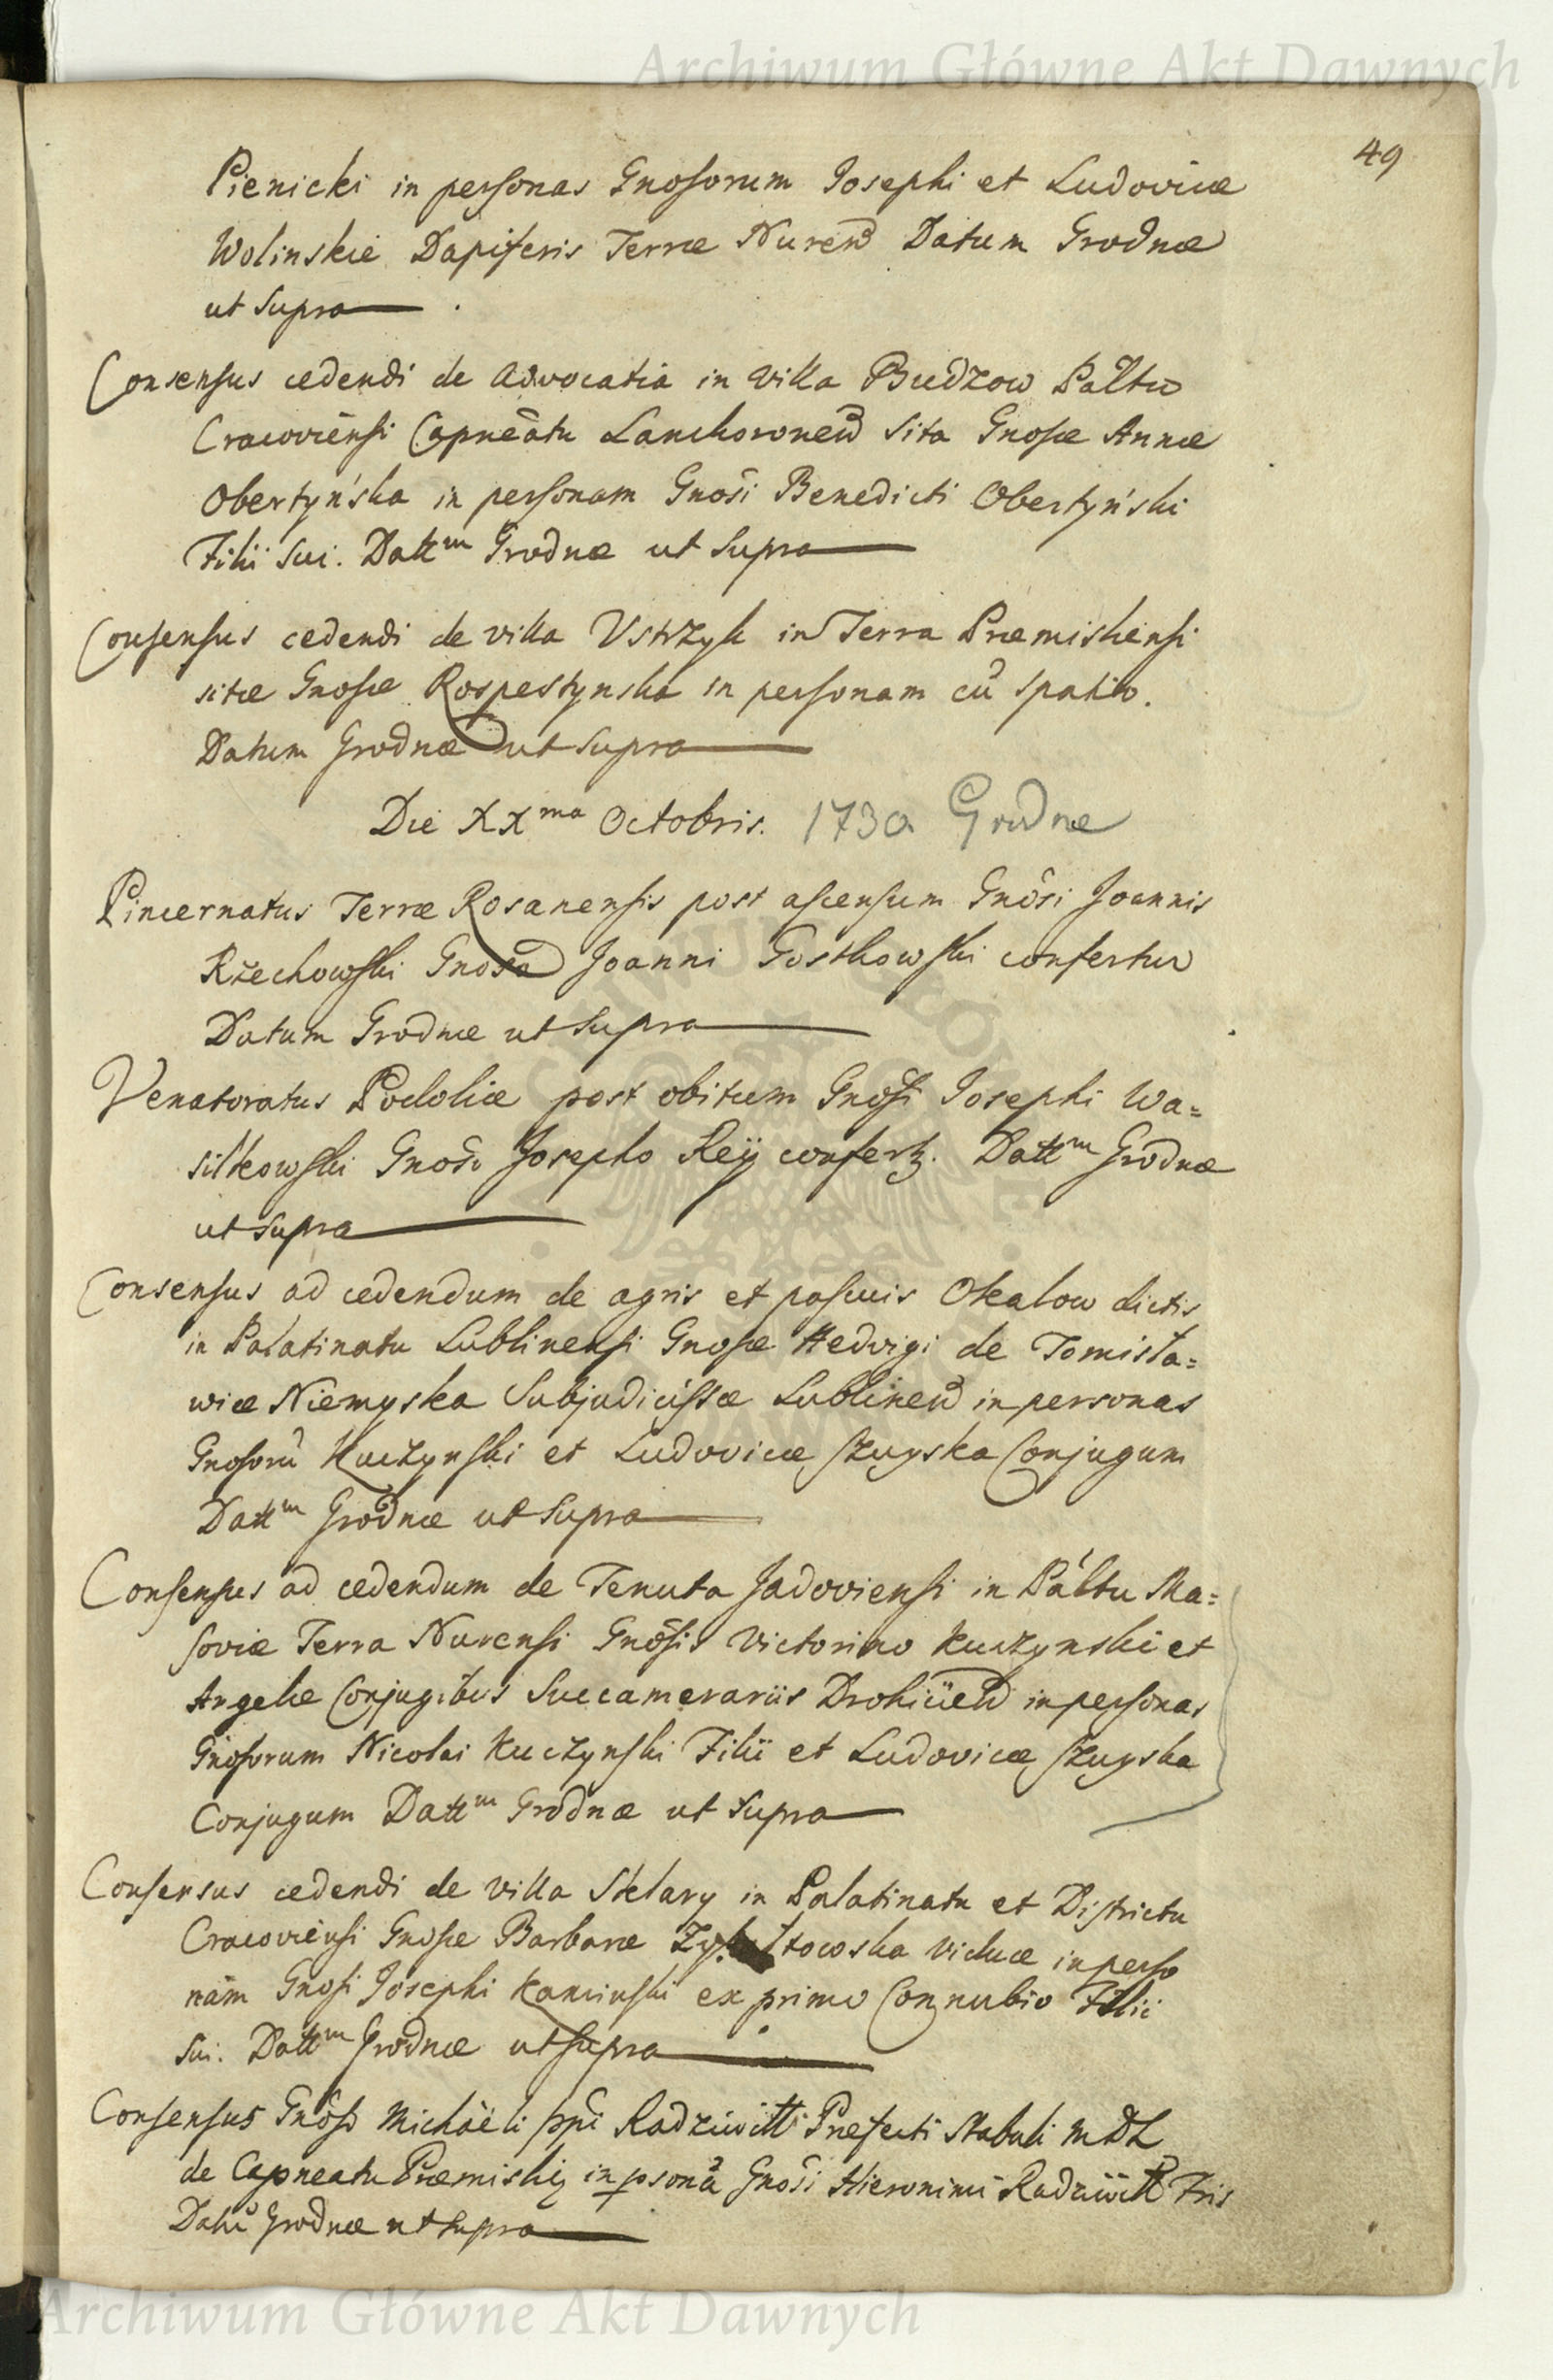 Archiwum Główne Akt Dawnych
49
Pienicki in personas Gnosorum Josephi et Ludovicæ
Wolinskie Dapiferis Terræ Nureñ Datum Grodnæ
ut supra
Consensus cedendi de Advocatia in villa Budzow Palttu
Cracoviensi Capneatu Lanckoroneñ sita Gnosæ Annæ
Obertyńska in personam Gnosi Benedicti Obertyński
Filii sui. Dattm Grodnæ ut supra
Consensus cedendi de villa Vstrzyk in Terra Præmisliensi
sitæ Gnosæ Rospestynska in personam cũ spatio.
Datum Grodnæ ut supra
Die XXma Octobris. 1730 Grodnæ
Pincernatus Terræ Rosanensis post ascensum Gnosi Joannis
Rżechowski Gnoso Joanni Gostkowski confertur
Datum Grodnæ ut supra
Venatoratus Podoliæ post obitum Gnosi Josephi Wa=
silkowski Gnoso Josepho Reÿ confert. Dattm Grodnæ
ut supra
Consensus ad cedendum de agris et pascuis Okalow dictis
in Palatinatu Lublinensi Gnosæ Hedvigi de Tomisła=
wice Niemyska Subjudicissæ Lublineñ in personas
Gnosorũ Kuczynski et Ludovicæ Szuyska Conjugum
Dattm Grodnæ ut supra
Consensus ad cedendum de Tenuta Jadoviensi in Palttu Ma=
soviæ Terra Nurensi Gnosis Victorino Kuczynski et
Angelæ Conjugibus Succamerariis Drohiceñ in personas
Gnosorum Nicolai Kuczynski Filii et Ludovicæ Szuyska
Conjugum Dattm Grodnæ ut supra
Consensus cedendi de villa Sklary in Palatinatu et Districtu
Cracoviensi Gnosæ Barbaræ viduæ in perso
nam Gnosi Josephi Kaminski ex primo Connubio Filii
sui. Dattm Grodnæ ut supra
Consensus Gnoso Michaëli ppi Radziwiłł Præfecti Stabuli MDL
de Capneatu Præmisliẽ in psonã Gnosi Hieronimi Radziwiłł Fris
Datũ Grodnæ ut supra
Archiwum Główne Akt Dawnych